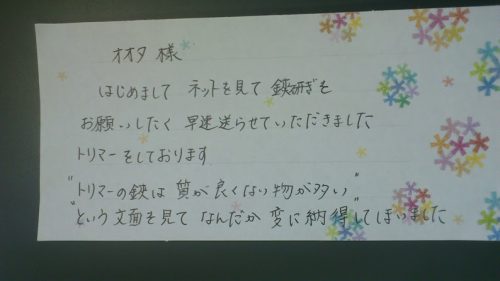 オオタ 様
はじめまして ネットを見て 鋏研ぎを
お願いしたく 早速送らせていただきました
トリマーをしております
"トリマーの鋏は 質が良くない物が多い"
"という文面を見て なんだか 変に納得してしまいました